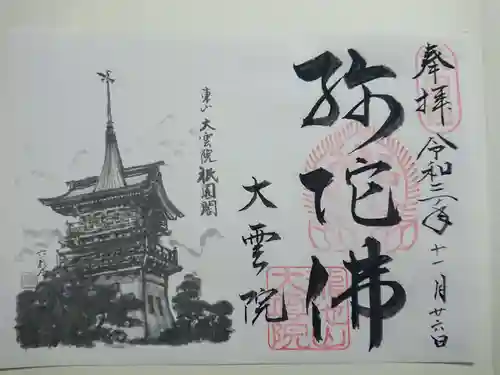 奉拝
令和三年十一月廿六日
弥陀佛
大雲院
東山大雲院祇園閣
大雲院